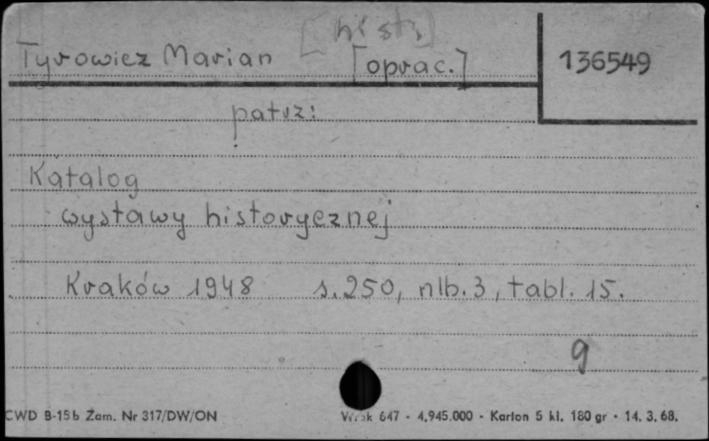 [hist.]
Tyrowicz Marian [oprac.] 136549
patrz:
Katalog
wystawy historycznej
Kraków 1948 s. 250, nlb. 3, tabl. 15.
g
CWD B-15b Zam. Nr 317/DW/ON 647 - 4,945.000 - Karton 5 kl. 180 gr - 14. 3. 68.